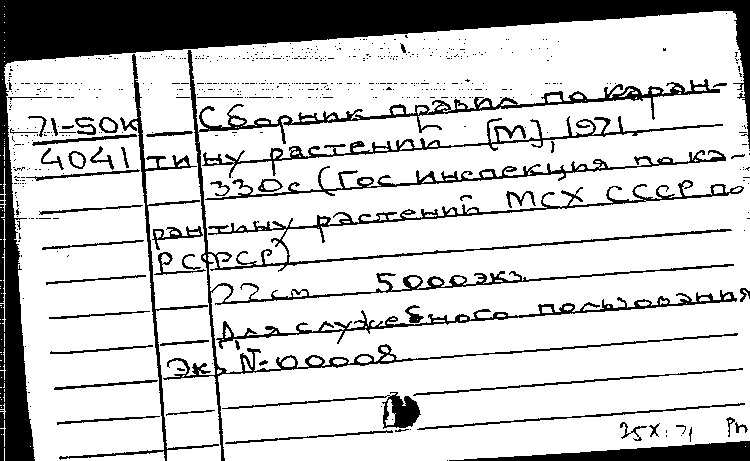 71-50К Сборник правил по каран-
4041 тину растений [М], 1971.
330с (Гос инспекция по ка-
рантину растений МСХ СССР по
РСФСР)
22 см 5000 экз.
Для служебного пользования
Экз №: 00008
25 X. 71